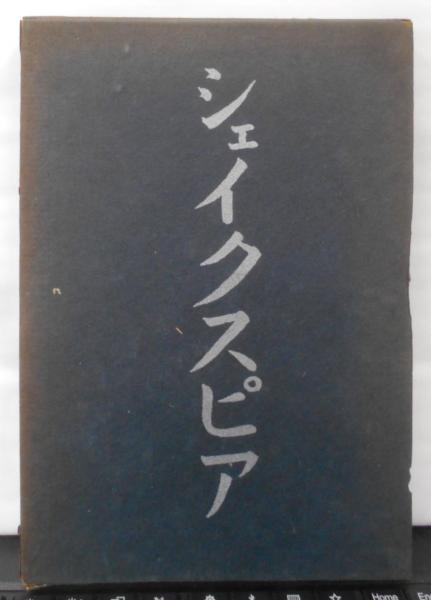 シェイクスピア
Home